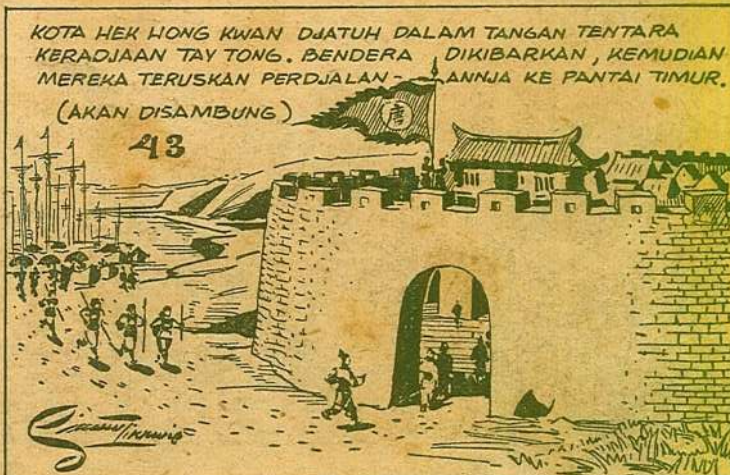 KOTA HEK HONG KWAN DJATUH DALAM TANGAN TENTARA
KERADJAAN TAY TONG. BENDERA DIKIBARKAN, KEMUDIAN
MEREKA TERUSKAN PERDJALAN - ANNJA KE PANTAI TIMUR.
(AKAN DISAMBUNG)
43
唐